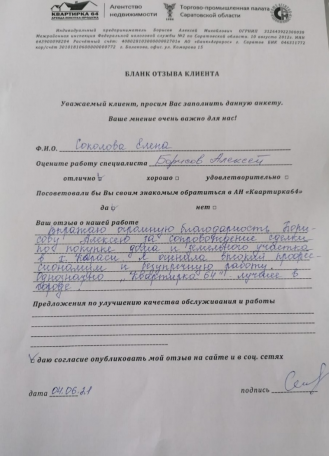 КВАРТИРКА 64
Агентство недвижимости
Торгово-промышленная палата Саратовской области
Индивидуальный предприниматель Борисов Алексей Михайлович
БЛАНК ОТЗЫВА КЛИЕНТА
Уважаемый клиент, просим Вас заполнить данную анкету.
Ваше мнение очень важно для нас!
Ф.И.О. Соколова Елена
Оцените работу специалиста Борисов Алексей
отлично хорошо удовлетворительно
Посоветовали бы Вы своим знакомым обратиться в АН «Квартирка64»
да нет
Ваш отзыв о нашей работе
Выражаю огромную благодарность Бори-
сову Алексею за сопровождение сделки
по покупке дома и земельного участка
в Я оценила высокий профес-
сионализм и безупречную работу.
Однозначно "Квартирка 64" лучшее в
городе!
Предложения по улучшению качества обслуживания и работы
даю согласие опубликовать мой отзыв на сайте и в соц. сетях
дата 04.06.21 подпись